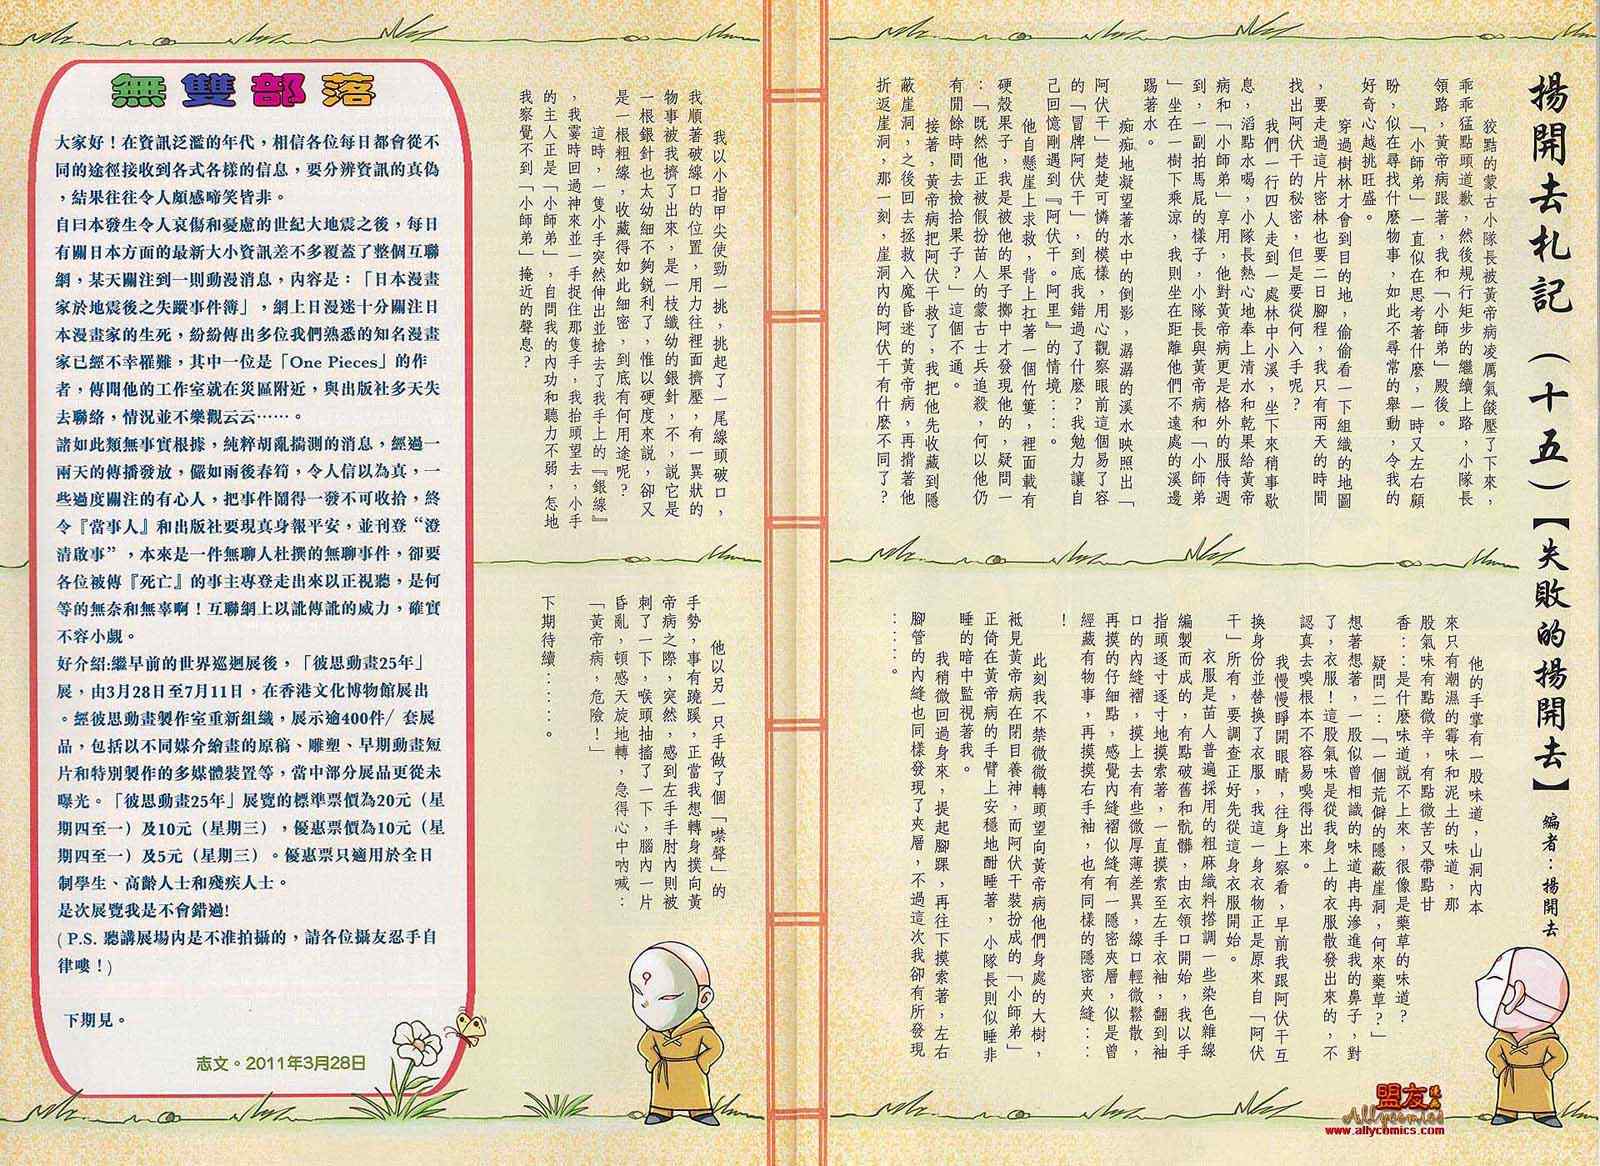 揚開去札記（十五）【失敗的揚開去】 編者：揚開去
狡黠的蒙古小隊長被黃帝病凌厲氣燄壓了下來，
乖乖猛點頭道歉，然後規行矩步的繼續上路，小隊長
領路，黃帝病跟著，我和「小師弟」殿後。
「小師弟」一直似在思考著什麼，一時又左右顧
盼，似在尋找什麼物事，如此不尋常的舉動，令我的
好奇心越挑旺盛。
穿過樹林才會到目的地，偷偷看一下組織的地圖
，要走過這片密林也要二日腳程，我只有兩天的時間
找出阿伏干的秘密，但是要從何入手呢？
我們一行四人走到一處林中小溪，坐下來稍事歇
息，滔點水喝，小隊長熱心地奉上清水和乾果給黃帝
病和「小師弟」享用，他對黃帝病更是格外的服侍週
到，一副拍馬屁的樣子，小隊長與黃帝病和「小師弟
」坐在一樹下乘涼，我則坐在距離他們不遠處的溪邊
踢著水。
痴痴地凝望著水中的倒影，潺潺的溪水映照出「
阿伏干」楚楚可憐的模樣，用心觀察眼前這個易了容
的「冒牌阿伏干」，到底我錯過了什麼？我勉力讓自
己回憶剛遇到『阿伏干。阿里』的情境：：。
他自懸崖上求救，背上扛著一個竹簍，裡面載有
硬殼果子，我是被他的果子擲中才發現他的，疑問一
：「既然他正被假扮苗人的蒙古士兵追殺，何以他仍
有閒餘時間去撿拾果子？」這個不通。
接著，黃帝病把阿伏干救了，我把他先收藏到隱
蔽崖洞，之後回去拯救入魔昏迷的黃帝病，再揹著他
折返崖洞，那一刻，崖洞內的阿伏干有什麼不同了？
他的手掌有一股味道，山洞內本
來只有潮濕的霉味和泥土的味道，那
股氣味有點微辛，有點微苦又帶點甘
香：：是什麼味道說不上來，很像是藥草的味道？
疑問二：「一個荒僻的隱蔽崖洞，何來藥草？」
想著想著，一股似曾相識的味道冉冉滲進我的鼻子，對
了，衣服！這股氣味是從我身上的衣服散發出來的，不
認真去嗅根本不容易嗅得出來。
我慢慢睜開眼睛，往身上察看，早前我跟阿伏干互
換身份並替換了衣服，我這一身衣物正是原來自「阿伏
干」所有，要調查正好先從這身衣服開始。
衣服是苗人普遍採用的粗麻織料搭調一些染色雜線
編製而成的，有點破舊和骯髒，由衣領口開始，我以手
指頭逐寸逐寸地摸索著，一直摸索至左手衣袖，翻到袖
口的內縫褶，摸上去有些微厚薄差異，線口輕微鬆散，
再摸的仔細點，感覺內縫褶似縫有一隱密夾層，似是曾
經藏有物事，再摸摸右手袖，也有同樣的隱密夾縫：：
！
此刻我不禁微微轉頭望向黃帝病他們身處的大樹，
衹見黃帝病在閉目養神，而阿伏干裝扮成的「小師弟」
正倚在黃帝病的手臂上安穩地酣睡著，小隊長則似睡非
睡的暗中監視著我。
我稍微回過身來，提起腳踝，再往下摸索著，左右
腳管的內縫也同樣發現了夾層，不過這次我卻有所發現
：：：。
我以小指甲尖使勁一挑，挑起了一尾線頭破口，
我順著破線口的位置，用力往裡面擠壓，有一異狀的
物事被我擠了出來，是一枝纖幼的銀針，不，說它是
一根銀針也太幼細不夠鋭利了，惟以硬度來說，卻又
是一根粗線，收藏得如此細密，到底有何用途呢？
這時，一隻小手突然伸出並搶去了我手上的『銀線』
，我霎時回過神來並一手捉住那隻手，我抬頭望去，小手
的主人正是「小師弟」，自問我的內功和聽力不弱，怎地
我察覺不到「小師弟」掩近的聲息？
他以另一只手做了個「噤聲」的
手勢，事有蹺蹊，正當我想轉身撲向黃
帝病之際，突然，感到左手手肘內則被
刺了一下，喉頭抽搐了一下，腦內一片
昏亂，頓感天旋地轉，急得心中吶喊：
「黃帝病，危險！」
下期待續：：：。
無雙部落
大家好！在資訊泛濫的年代，相信各位每日都會從不
同的途徑接收到各式各樣的信息，要分辨資訊的真偽
，結果往往令人頗感啼笑皆非。
自日本發生令人哀傷和憂慮的世紀大地震之後，每日
有關日本方面的最新大小資訊差不多覆蓋了整個互聯
網，某天關注到一則動漫消息，內容是：「日本漫畫
家於地震後之失蹤事件簿」，網上日漫迷十分關注日
本漫畫家的生死，紛紛傳出多位我們熟悉的知名漫畫
家已經不幸罹難，其中一位是「One Pieces」的作
者，傳聞他的工作室就在災區附近，與出版社多天失
去聯絡，情況並不樂觀云云……。
諸如此類無事實根據，純粹胡亂揣測的消息，經過一
兩天的傳播發放，儼如雨後春筍，令人信以為真，一
些過度關注的有心人，把事件鬧得一發不可收拾，終
令『當事人』和出版社要現真身報平安，並刊登“澄
清啟事”，本來是一件無聊人杜撰的無聊事件，卻要
各位被傳『死亡』的事主專登走出來以正視聽，是何
等的無奈和無辜啊！互聯網上以訛傳訛的威力，確實
不容小覷。
好介紹:繼早前的世界巡迴展後，「彼思動畫25年」
展，由3月28日至7月11日，在香港文化博物館展出
。經彼思動畫製作室重新組織，展示逾400件/ 套展
品，包括以不同媒介繪畫的原稿、雕塑、早期動畫短
片和特別製作的多媒體裝置等，當中部分展品更從未
曝光。「彼思動畫25年」展覽的標準票價為20元（星
期四至一）及10元（星期三），優惠票價為10元（星
期四至一）及5元（星期三）。優惠票只適用於全日
制學生、高齡人士和殘疾人士。
是次展覽我是不會錯過!
( P.S. 聽講展場內是不准拍攝的，請各位攝友忍手自
律嘍！)
下期見。
志文。2011年3月28日
盟友
Allycomics
www.allycomics.com